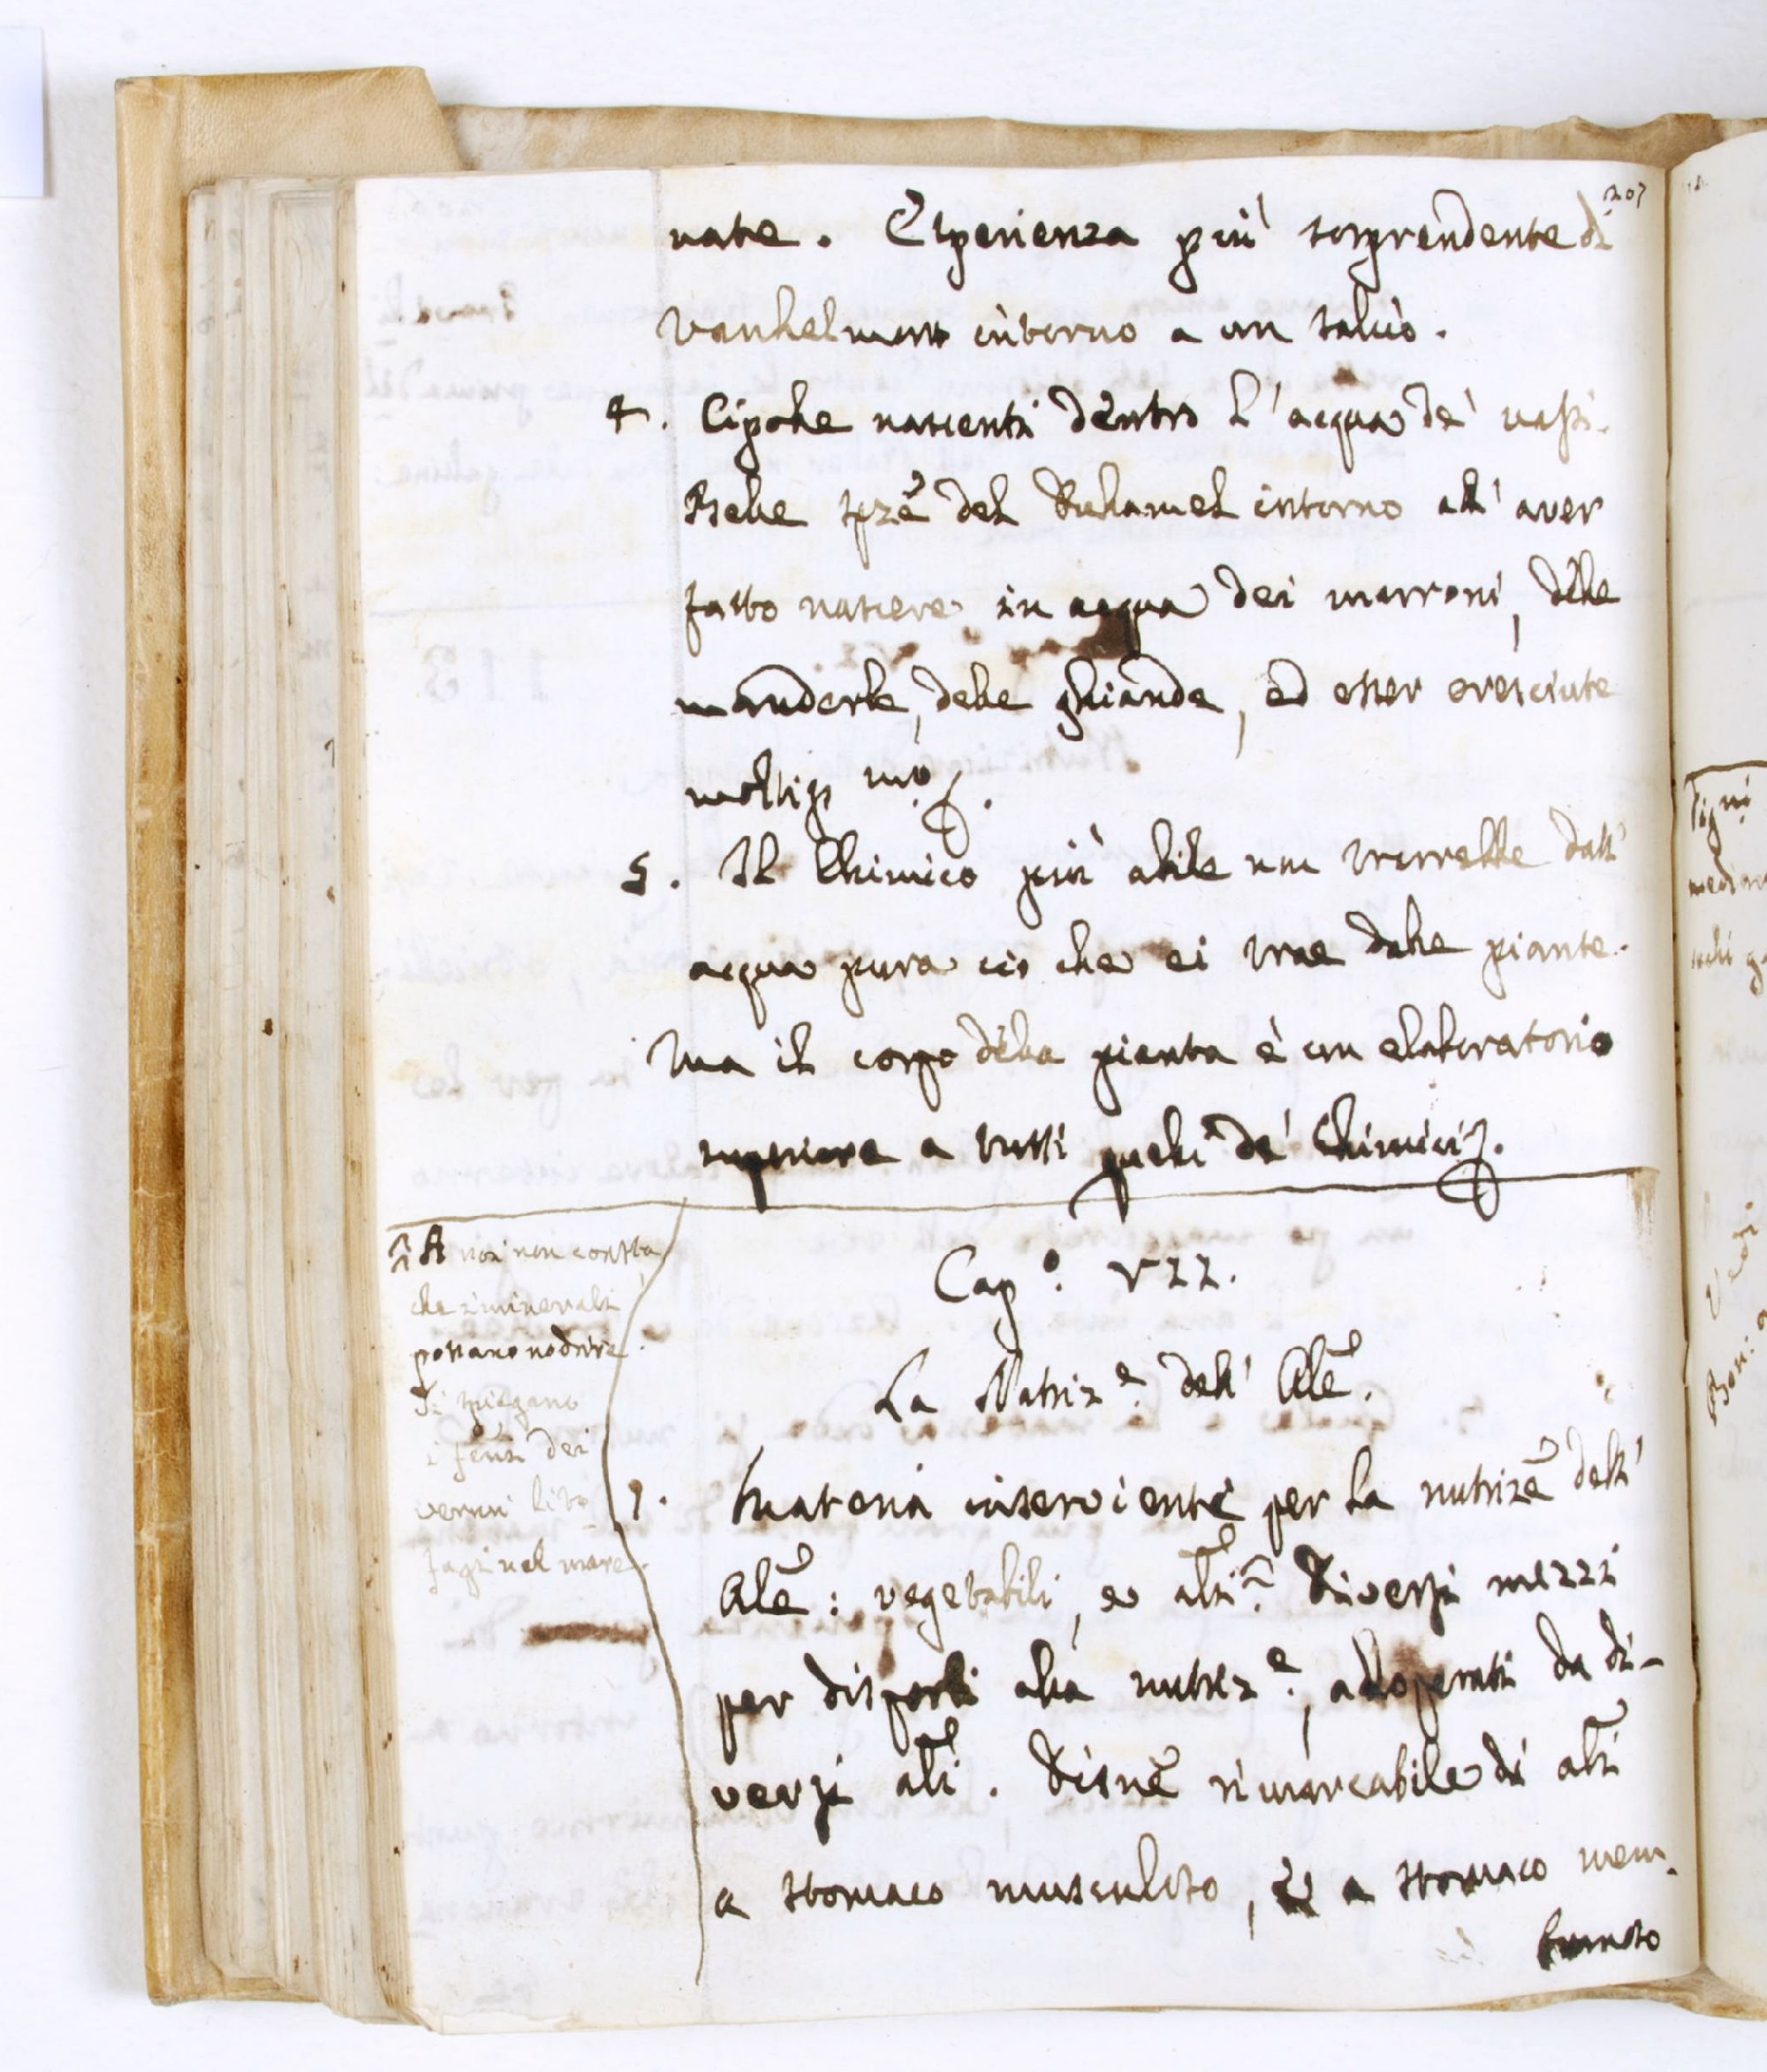 207
nate. Esperienza più sorprendente di
Vanhelmont intorno a un salcio.
4. Cipolle nascenti dentro l'acqua de' vasi.
Belle spze del Duhamel intorno all'aver
fatto nascere in acqua dei marroni, delle
manderle, delle ghiande, ed esser cresciute
moltiss.mo
5. Il Chimico più abile non trarrebbe dall'
acqua pura ciò che ei trae dalle piante.
Ma il corpo della pianta è un elaboratorio
superiore a tutti quelli de' Chimici.
Cap.o VII.
La Nutriz.e dell' Ale.
1. Materia inserviente per la nutrize dell'
Ale: vegetabili, e ali. Diversi mezzi
per disporli alla nutriz.e, adoperati da di-
versi ali. Disne rimarcabile di ali
a stomaco muscoloso, e a stomaco mem-
branoso
A noi non consta
che i minerali
possano nodrire.
Si spiegano
i feni dei
vermi lito
fagi nel mare.